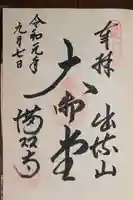 奉拝
出流山
大御堂
満願寺
令和元年
九月七日